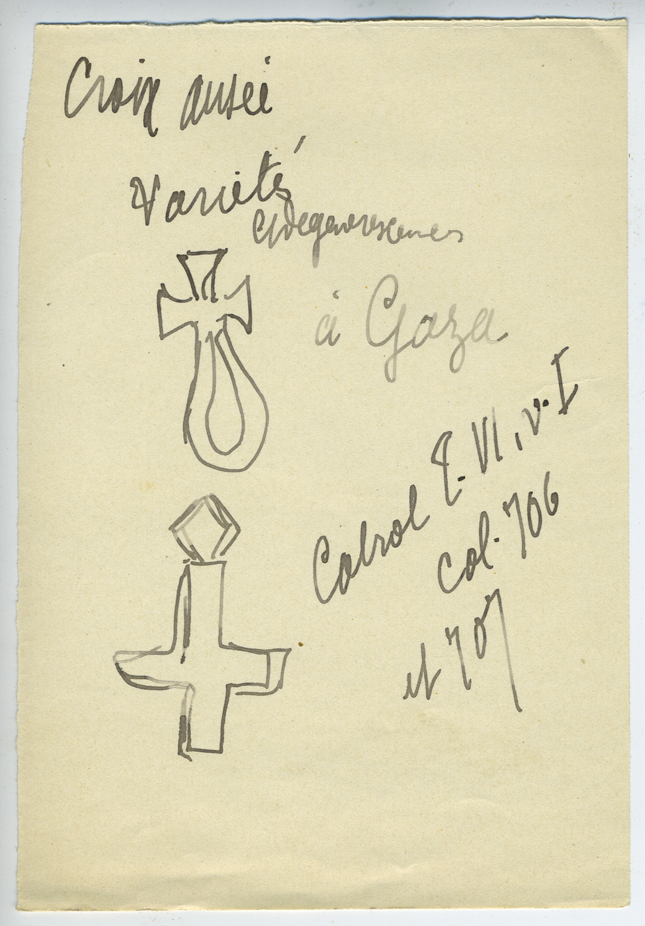 Croix ansée
Variété
et dégénérescences
à Gaza
Cabrol T. VI, v. I
col. 706
et 707